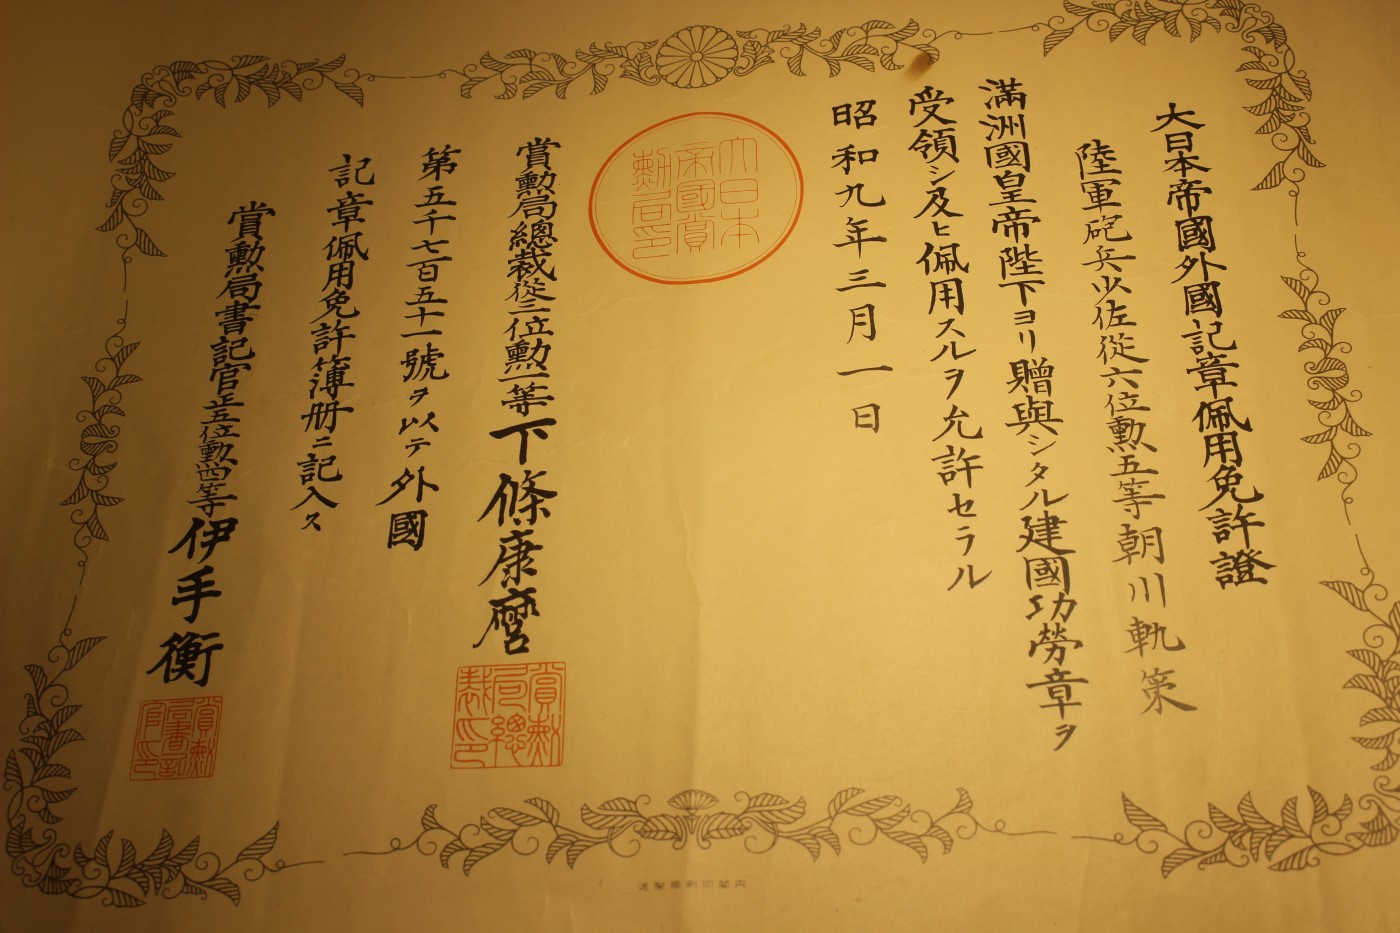 大日本帝國外國記章佩用免許證
陸軍砲兵少佐從六位勲五等朝川軌策
滿洲國皇帝陛下ヨリ贈與シタル建國功勞章ヲ
受領シ及ヒ佩用スルヲ允許セラル
昭和九年三月一日
大日本
帝國賞
勲局印
賞勲局總裁從三位勲一等下條康麿
賞勲
局總
裁印
第五千七百五十一號ヲ以テ外國
記章佩用免許簿册ニ記入ス
賞勲局書記官正五位勲四等伊手衡
賞勲
局書記
官印
內閣印刷局製造